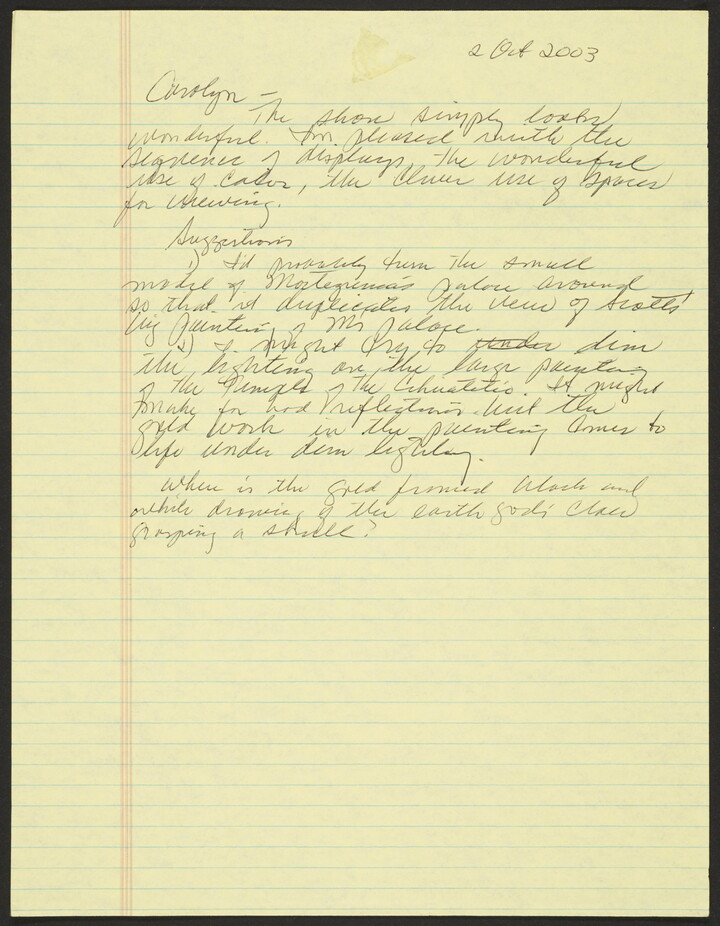 2 Oct 2003
Carolyn –
The show simply looks
wonderful. I'm pleased with the
sequence of displays, the wonderful
use of color, the clever use of spaces
for viewing.
Suggestions
1) I'd probably turn the small
model of Motezuma's palace around
so that it duplicates the view of Scott's
big painting of M's palace.
2) I might try to under dim
the lighting on the large painting
of the Temple of the Cihuateteo. It might
make for bad reflections but the
gold work in the painting comes to
life under dim lighting.
Where is the gold framed black and
white drawing of the earth god's claw
grasping a skull?